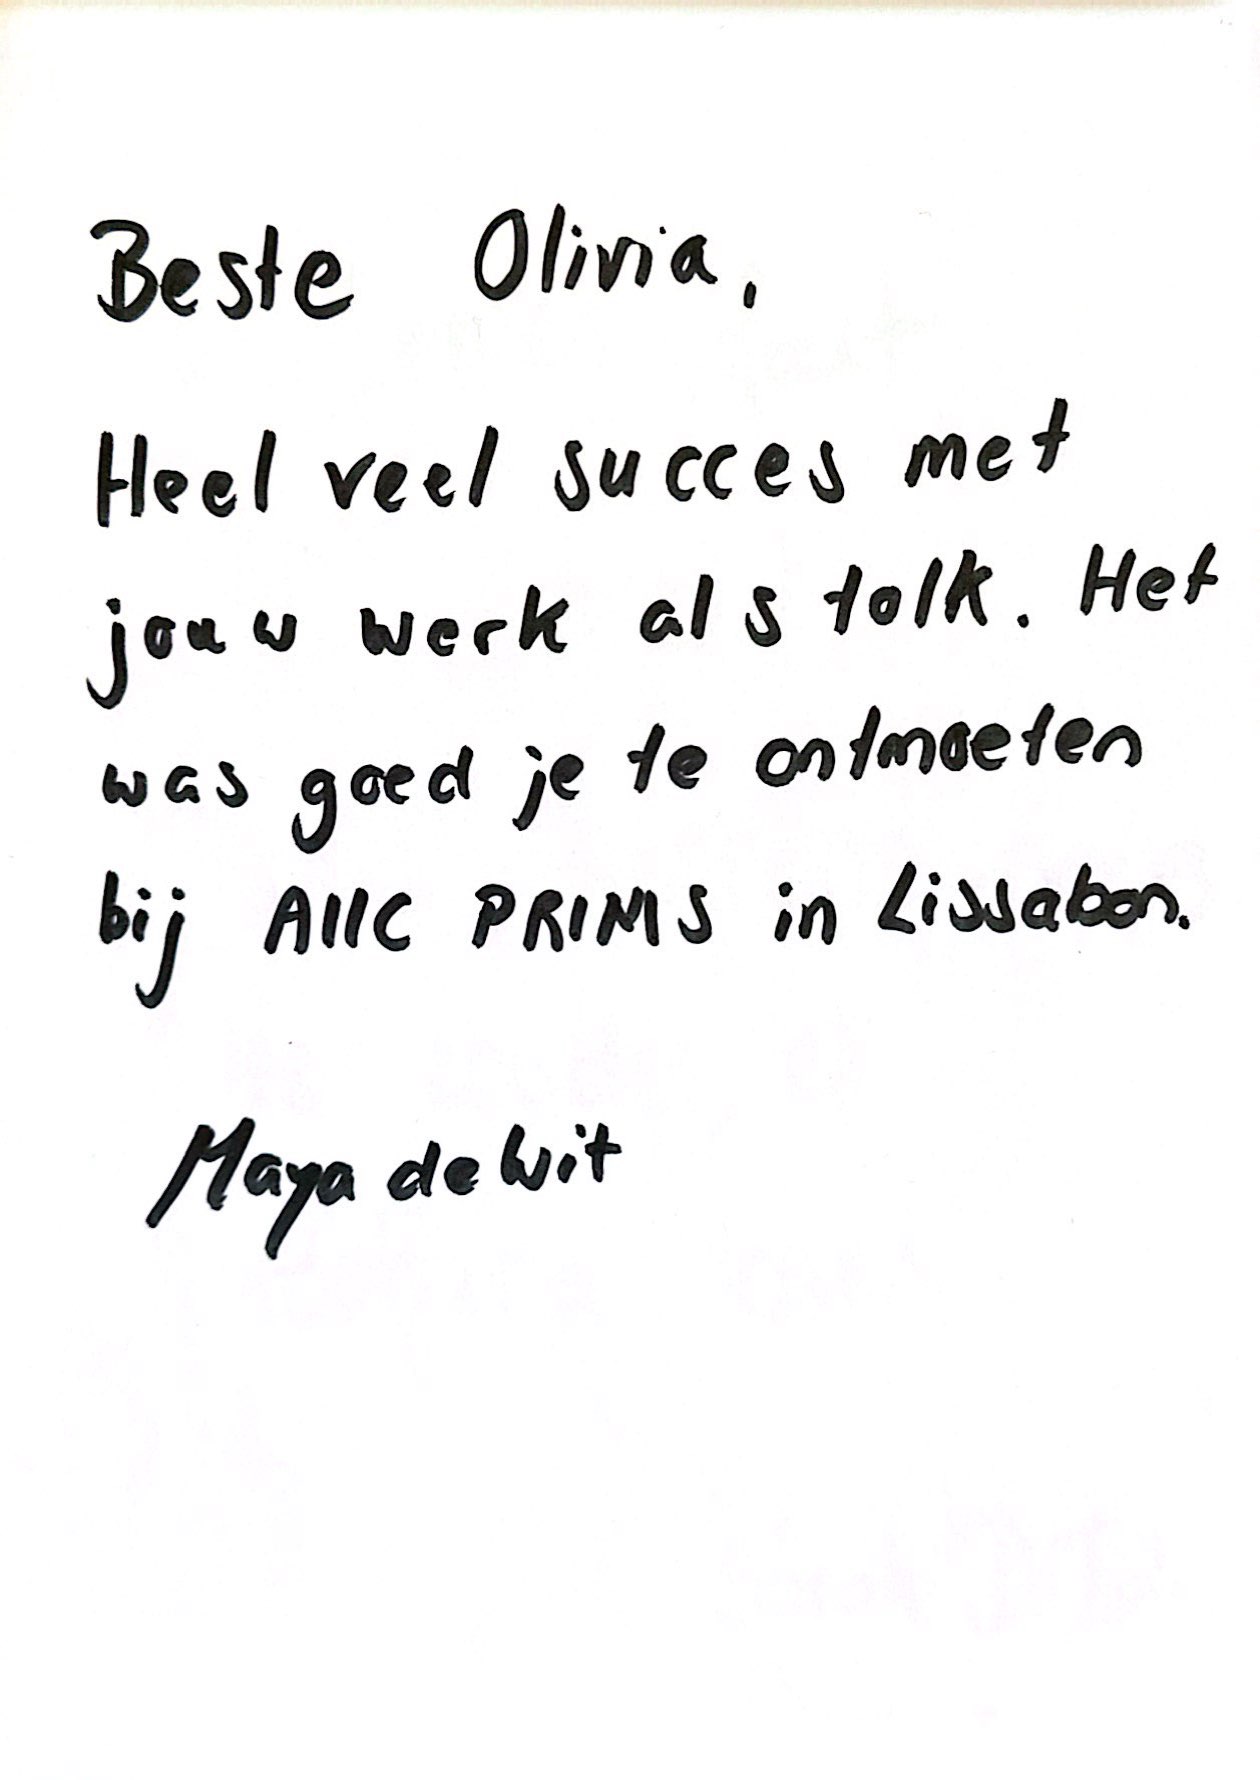 Beste Olivia,
Heel veel succes met
jouw werk als tolk. Het
was goed je te ontmoeten
bij AIIC PRIMS in Lissabon.
Maya de Wit